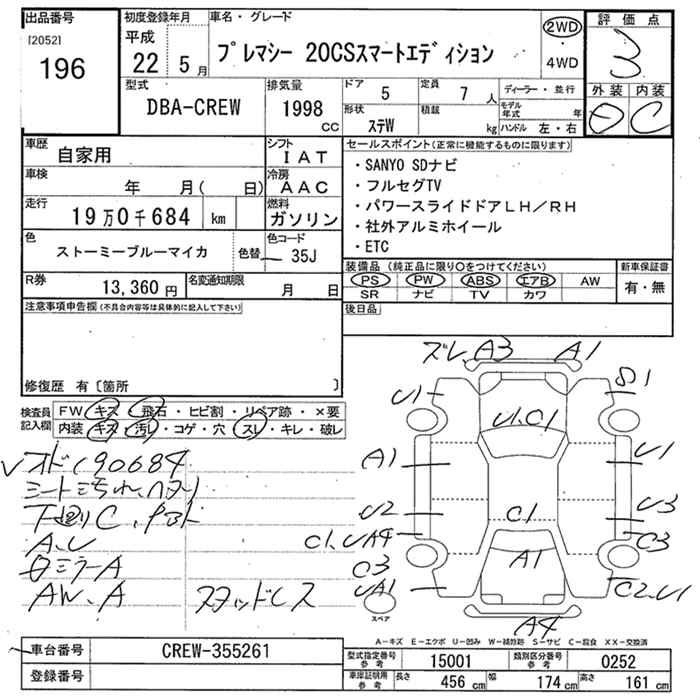 出品番号
[2052]
196
初度登録年月
平成
22 5 月
車名・グレード
プレマシー 20CSスマートエディション
2WD
・
4WD
評価点
3
外装 内装
D C
型式
DBA-CREW
排気量
1998
CC
ドア
5
定員
7 人
形状
ステW
積載
kg
ディーラー・並行
モデル年式 年
ハンドル 左・右
車歴
自家用
シフト
IAT
車検
年 月( 日)
冷房
AAC
走行
19万0千684 km
燃料
ガソリン
色
ストーミーブルーマイカ
色替
色コード
35J
R券
13,360 円
名変通知期限
月 日
セールスポイント(正常に機能するものに限ります)
・SANYO SDナビ
・フルセグTV
・パワースライドドアLH/RH
・社外アルミホイール
・ETC
装備品(純正品に限り○をつけてください)
PS PW ABS エアB AW
SR ナビ TV カワ
新車保証書
有・無
後日品
注意事項申告欄(不具合内容等は具体的に記入して下さい)
修復歴 有〔箇所 〕
検査員記入欄
FW キズ・飛石・ヒビ割・リペア跡・×要
内装 キズ・汚レ・コゲ・穴・スレ・キレ・破レ
オド190684
シート汚れ、ヘタリ
下廻りC、
A、U
ミラーA
AW、A
スタッドレス
ズレ、A3
A1
U1
S1
U1、C1
A1
U1
U2
U3
C1
C1、UA4
C3
C3
A1
UA1
C2、U1
A4
スペア
A-キズ E-エクボ U-凹み W-補修跡 S-サビ C-腐食 XX-交換済
車台番号
CREW-355261
登録番号
型式指定番号参考
15001
類別区分番号参考
0252
車庫証明用参考
長さ 456 cm
幅 174 cm
高さ 161 cm